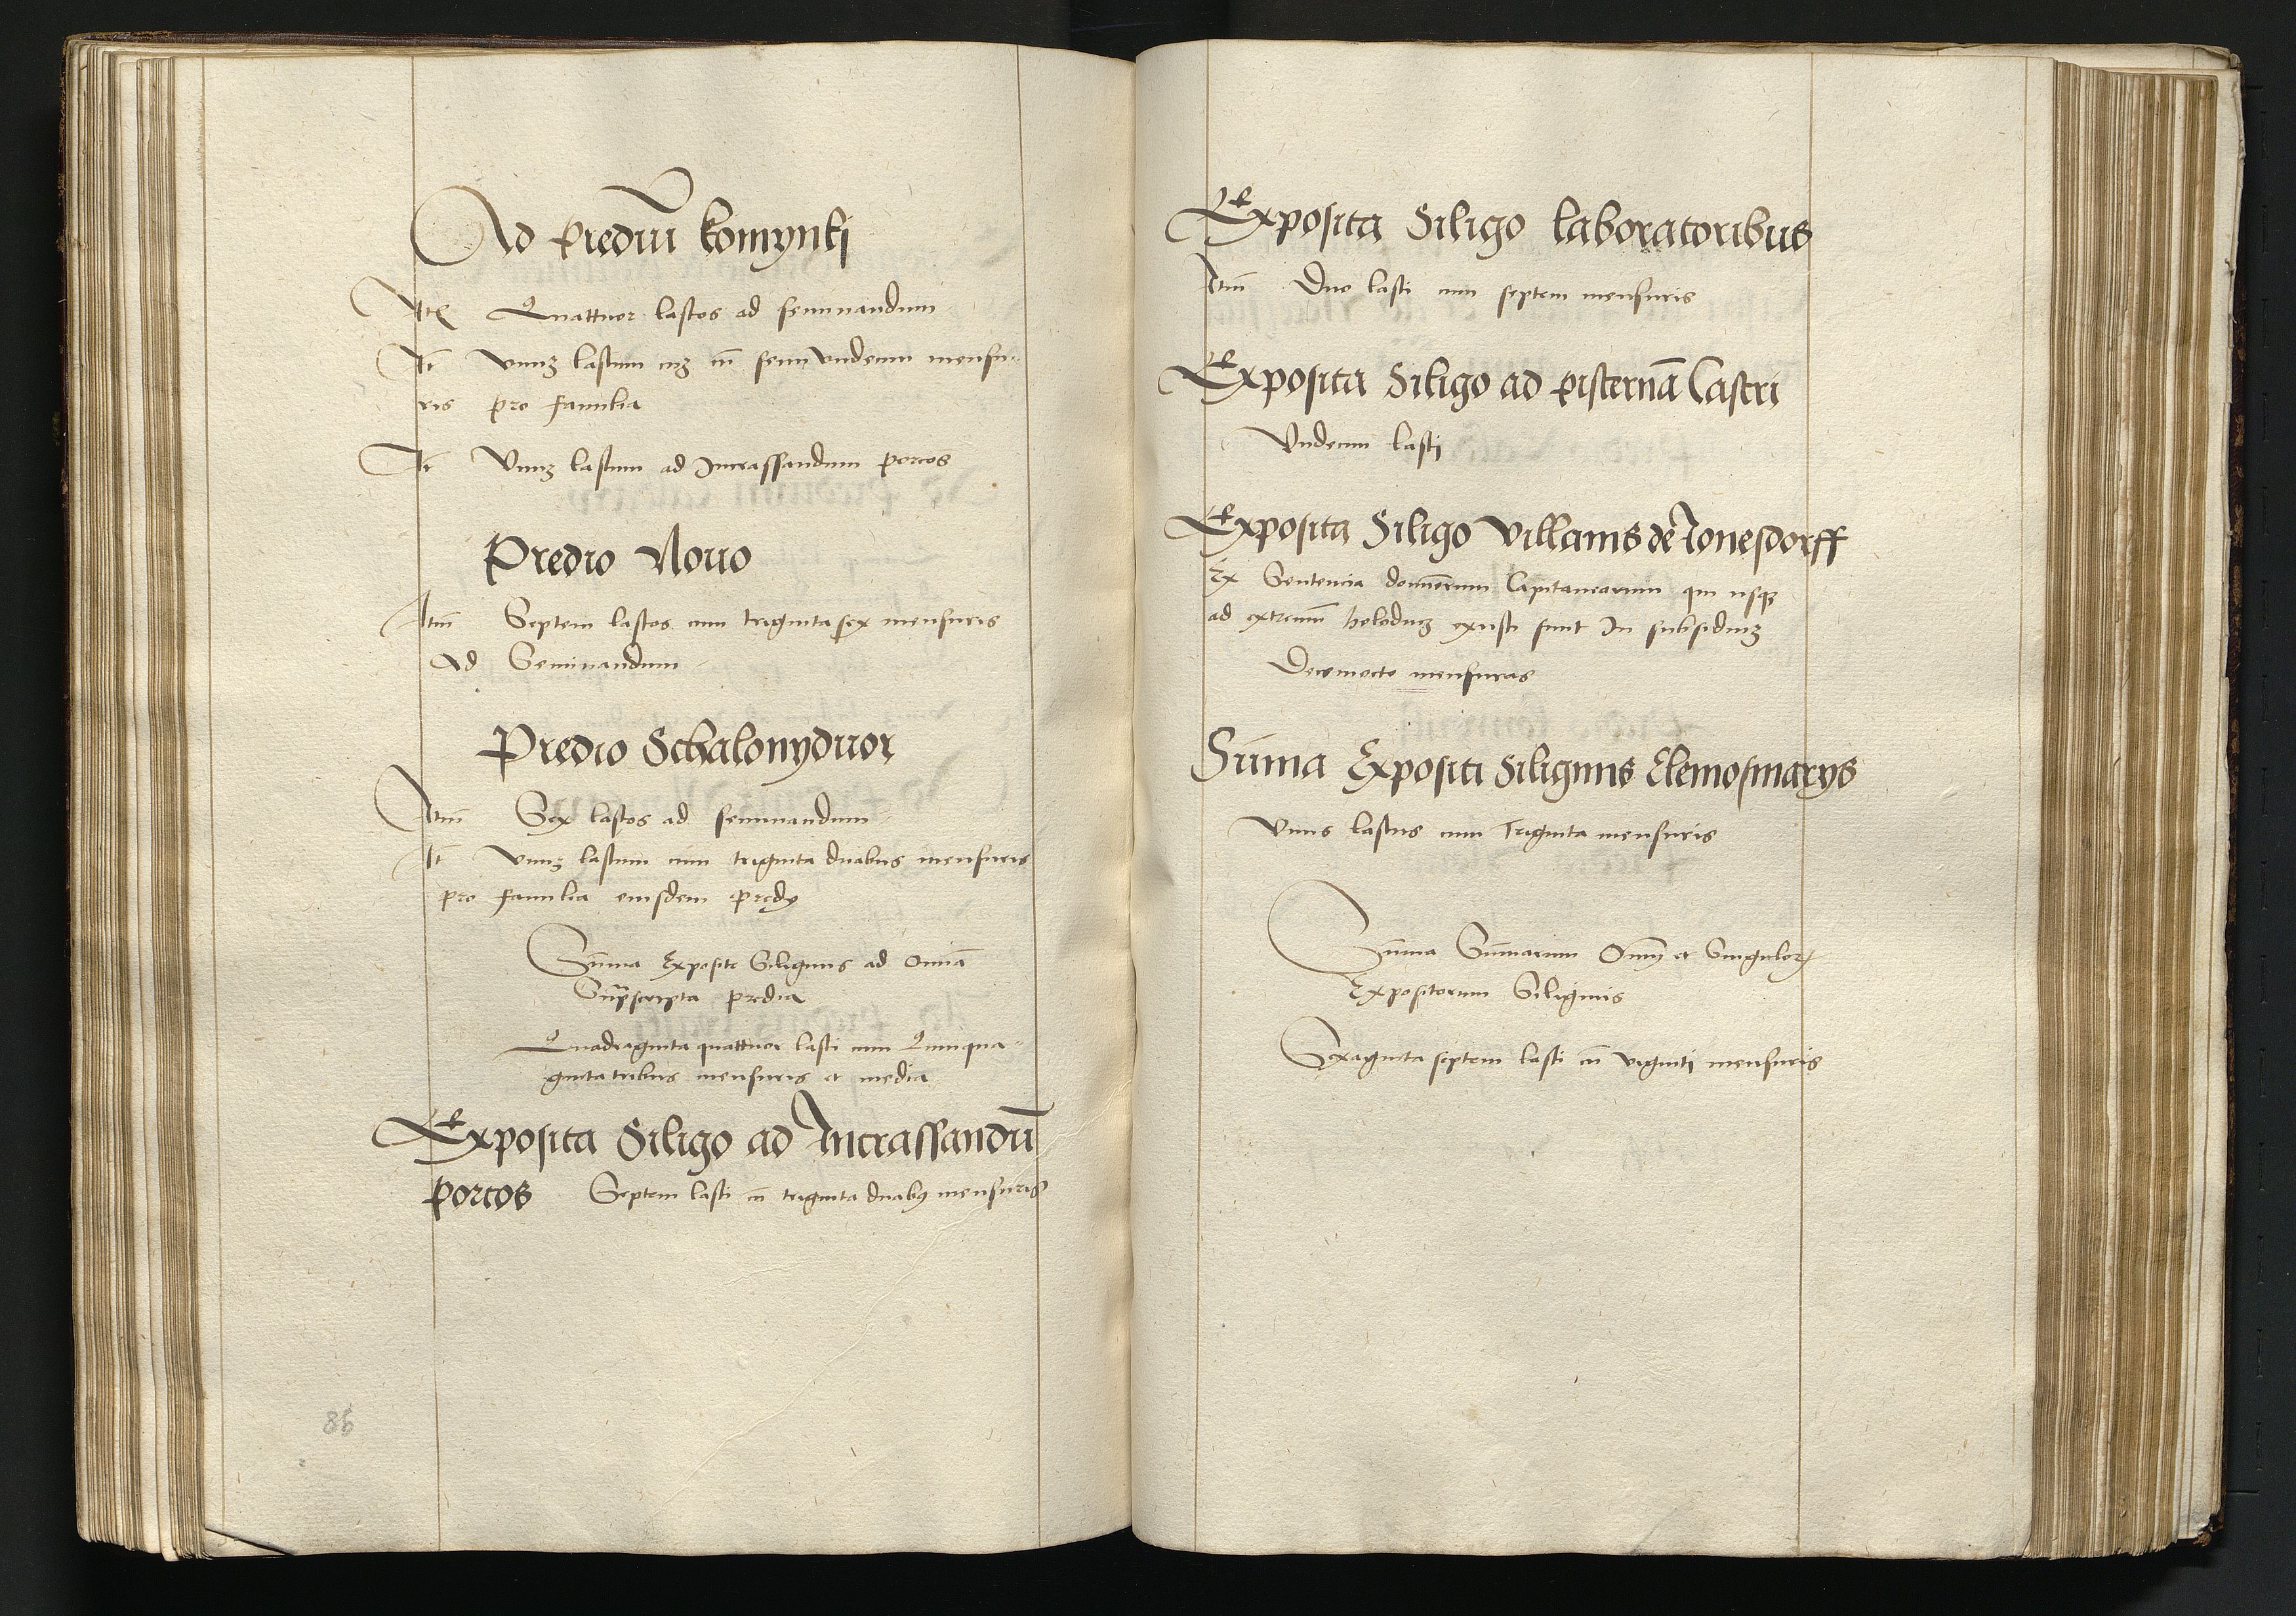 Ad Prediū komynki
Itē Quattuor lastos ad seminandum
It̄ vnuʒ lastum cuʒ cū semivndecim mensu-
ris pro familia
It̄ Vnuʒ lastum ad Incrassandum porcos
Predio Nouo
Itm̄ Septem lastos cum triginta sex mensuris
Ad Seminandum
Predio Schalonyduor
Itm̄ Sex lastos ad seminandum
It̄ vnuʒ lastum cum triginta duabus mensuris
pro familia eiusdem predy
Sūma Exposite Siliginis ad Omīa
Suprascripta predia
Quadraginta quattuor lasti cum Quinqua-
ginta tribus mensuris et media
Exposita Siligo ad Incrassandū
porcos Septem lasti cū triginta duabꝰ mensuris
86
Exposita Siligo laboratoribus
Itm̄ Duo lasti cum septem mensuris
Exposita Siligo ad pisternā Castri
Vndecim lasti
Exposita Siligo villanis de Jonesdorff
Ex Sentencia dominorum Capitaneorum qui usqꝫ
ad extremū holoduʒ exusti sunt In subsidiuʒ
Decemocto mensuras
Sūma Expositi Siliginis Elemosinarys
Vnus lastus cum Triginta mensuris
Sūma Sūmarum Omniū et Singulorꝝ
Expositorum Siliginis
Sexaginta septem lasti cū viginti mensuris